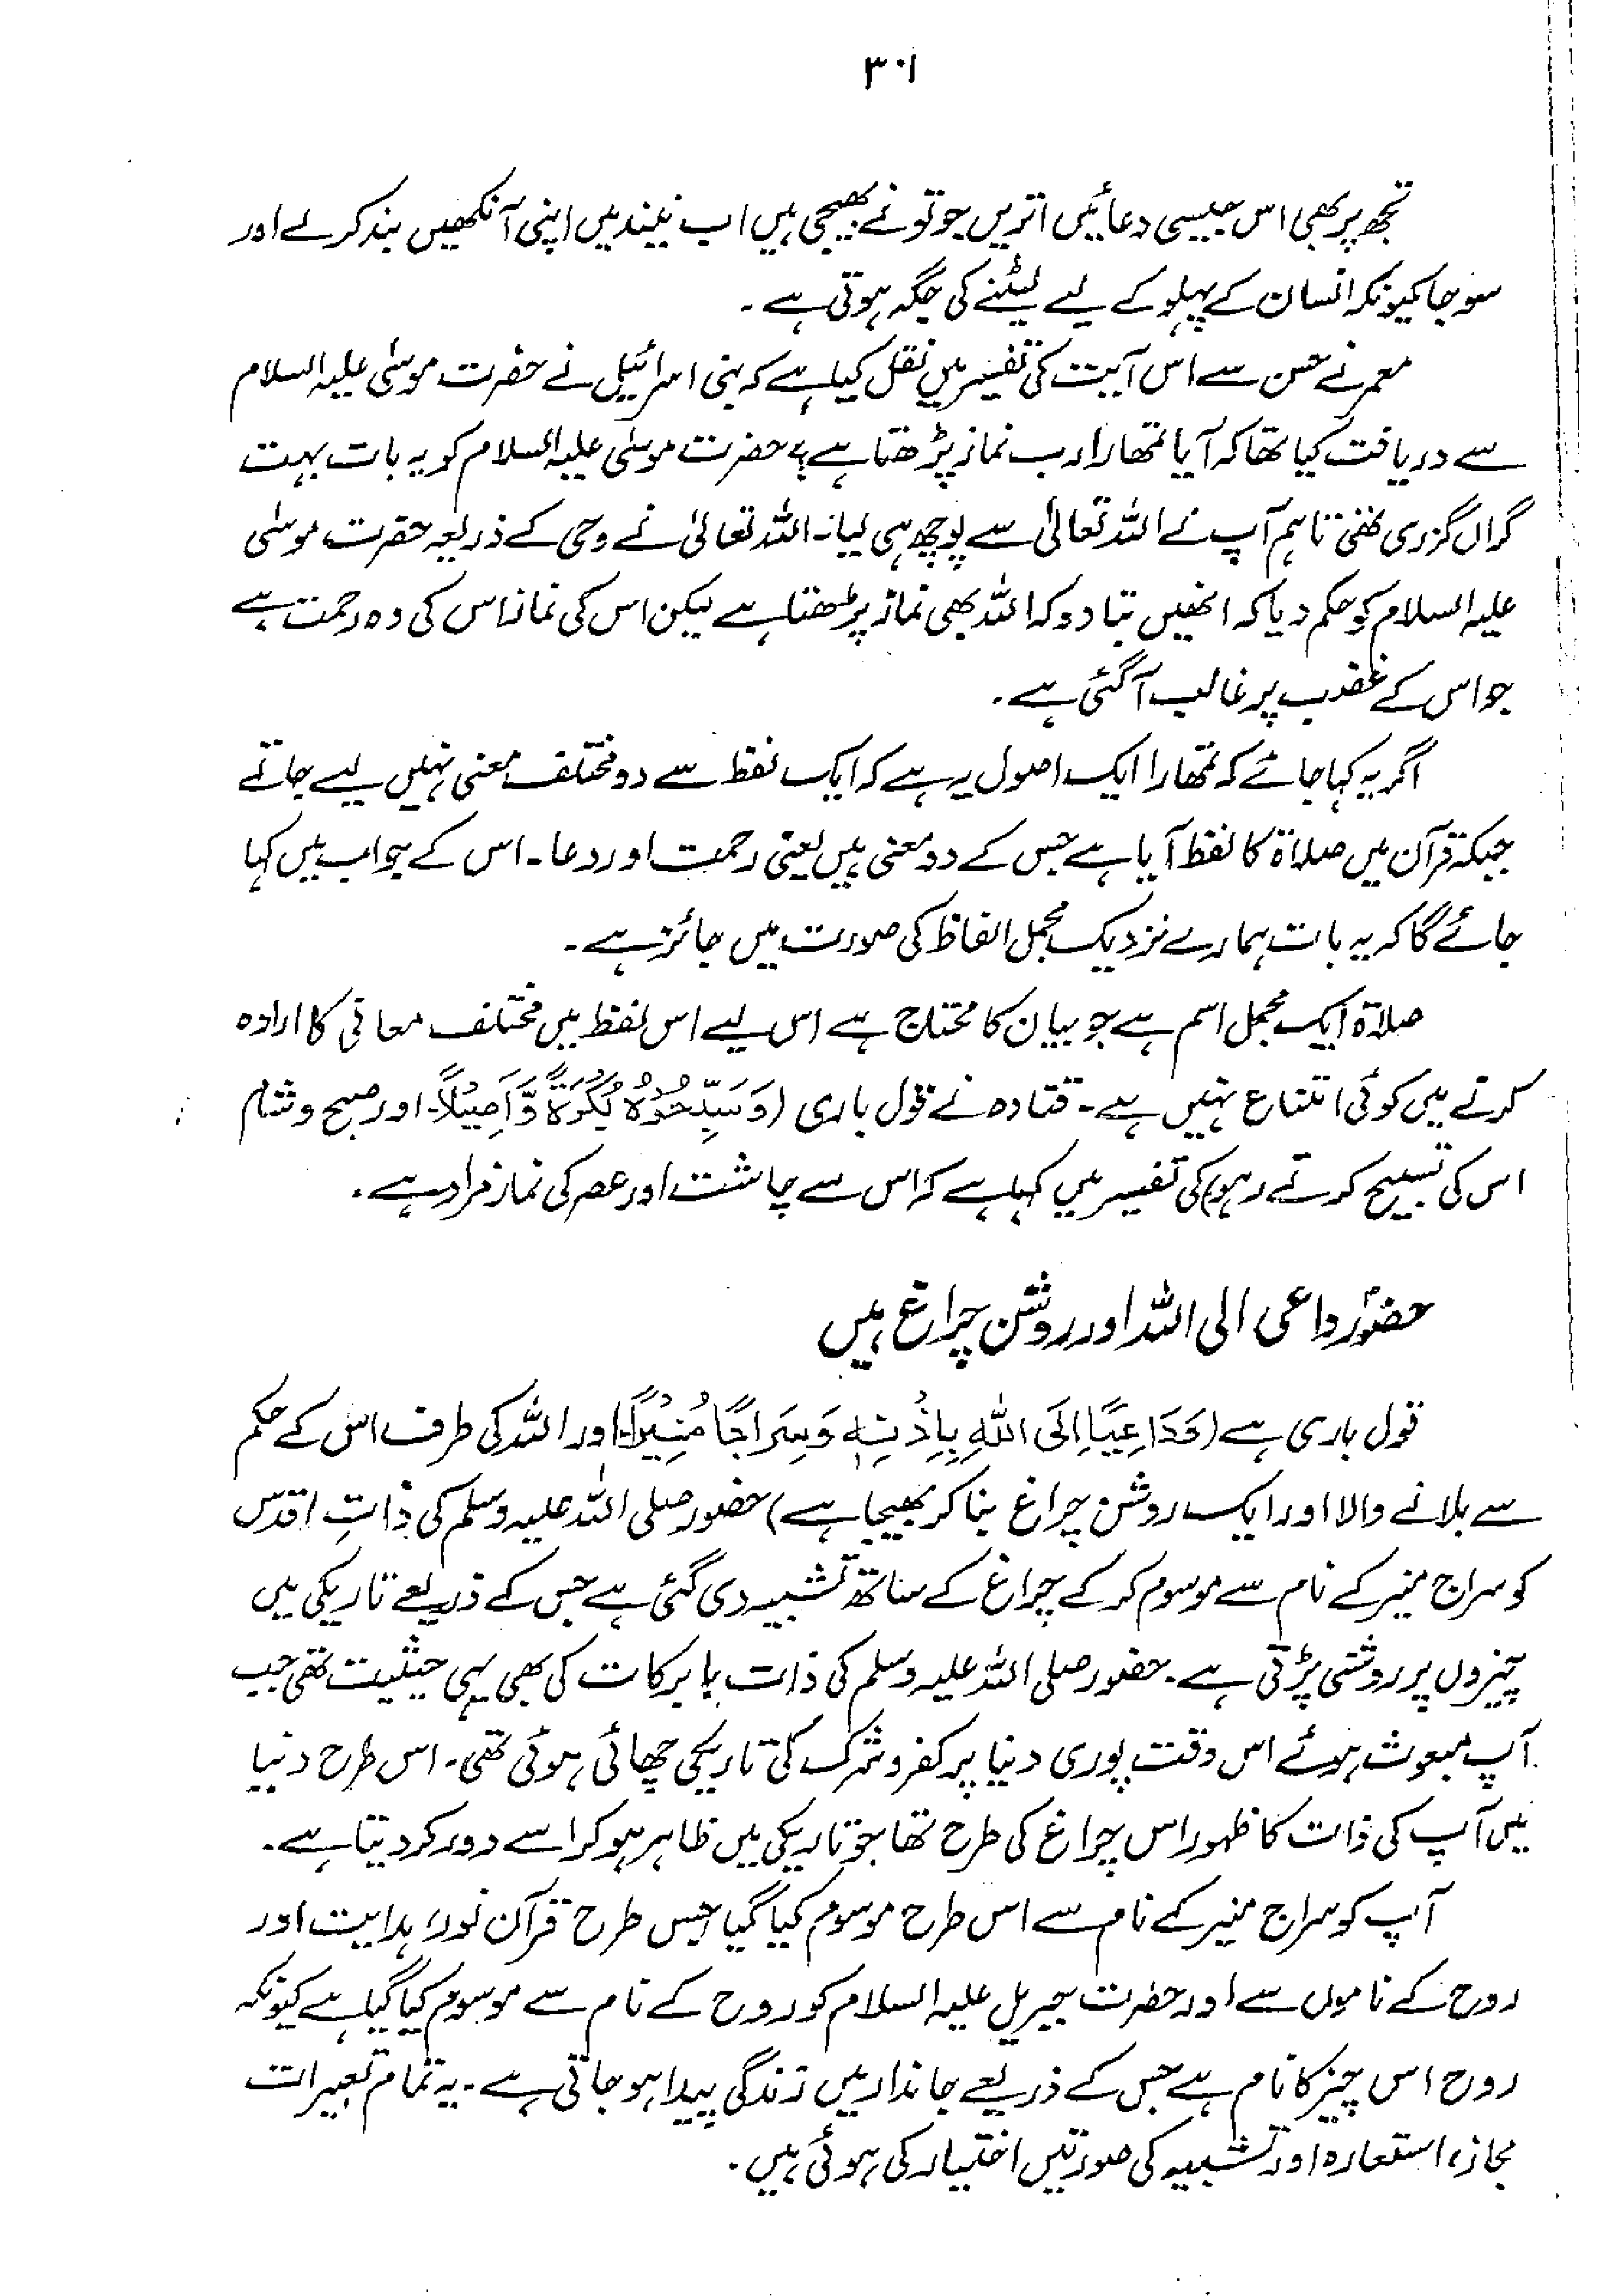 ۳۰۱
تجھ پر بھی اس جیسی دعائیں اتریں جو تو نے بھیجی ہیں اب نیند میں اپنی آنکھیں بند کر لے اور
سو جا کیونکہ انسان کے پہلو کے لیے لیٹنے کی جگہ ہوتی ہے۔
معمر نے حسن سے اس آیت کی تفسیر میں نقل کیا ہے کہ بنی اسرائیل نے حضرت موسٰی علیہ السلام
سے دریافت کیا تھا کہ آیا تمھارا رب نماز پڑھتا ہے؟ حضرت موسٰی علیہ السلام کو یہ بات بہت
گراں گزری تھی تاہم آپ نے اللہ تعالیٰ سے پوچھ ہی لیا۔ اللہ تعالیٰ نے وحی کے ذریعہ حضرت موسٰی
علیہ السلام کو حکم دیا کہ انھیں بتا دو کہ اللہ بھی نماز پڑھتا ہے لیکن اس کی نماز اس کی وہ رحمت ہے
جو اس کے غضب پر غالب آگئی ہے۔
اگر یہ کہا جائے کہ تمھارا ایک اصول یہ ہے کہ ایک لفظ سے دو مختلف معنی نہیں لیے جاتے
جبکہ قرآن میں صلاۃ کا لفظ آیا ہے جس کے دو معنی ہیں یعنی رحمت اور دعا۔ اس کے جواب میں کہا
جائے گا کہ یہ بات ہمارے نزدیک مجمل الفاظ کی صورت میں جائز ہے۔
صلاۃ ایک مجمل اسم ہے جو بیان کا محتاج ہے اس لیے اس لفظ میں مختلف معانی کا ارادہ
کرنے میں کوئی امتناع نہیں ہے۔ قتادہ نے قول باری (وَسَبِّحُوْهُ بُكْرَةً وَّاَصِيْلًا۔ اور صبح و شام
اس کی تسبیح کرتے رہو) کی تفسیر میں کہا ہے کہ اس سے چاشت اور عصر کی نماز مراد ہے۔
حضورؐ داعی الی اللہ اور روشن چراغ ہیں
قول باری ہے (وَدَاعِيًا اِلَى اللهِ بِاِذْنِهٖ وَسِرَاجًا مُّنِيْرًا۔ اور اللہ کی طرف اس کے حکم
سے بلانے والا اور ایک روشن چراغ بنا کر بھیجا ہے) حضور صلی اللہ علیہ وسلم کی ذاتِ اقدس
کو سراج منیر کے نام سے موسوم کر کے چراغ کے ساتھ تشبیہ دی گئی ہے جس کے ذریعے تاریکی میں
چیزوں پر روشنی پڑتی ہے۔ حضور صلی اللہ علیہ وسلم کی ذات بابرکات کی بھی یہی حیثیت تھی جب
آپ مبعوث ہوئے اس وقت پوری دنیا پر کفر و شرک کی تاریکی چھائی ہوئی تھی۔ اس طرح دنیا
میں آپ کی ذات کا ظہور اس چراغ کی طرح تھا جو تاریکی میں ظاہر ہو کر اسے دور کر دیتا ہے۔
آپ کو سراج منیر کے نام سے اس طرح موسوم کیا گیا جس طرح قرآن نور، ہدایت اور
روح کے ناموں سے اور حضرت جبریل علیہ السلام کو روح کے نام سے موسوم کیا گیا ہے کیونکہ
روح اس چیز کا نام ہے جس کے ذریعے جاندار میں زندگی پیدا ہو جاتی ہے۔ یہ تمام تعبیرات
مجاز، استعارہ اور تشبیہ کی صورتیں اختیار کی ہوئی ہیں۔